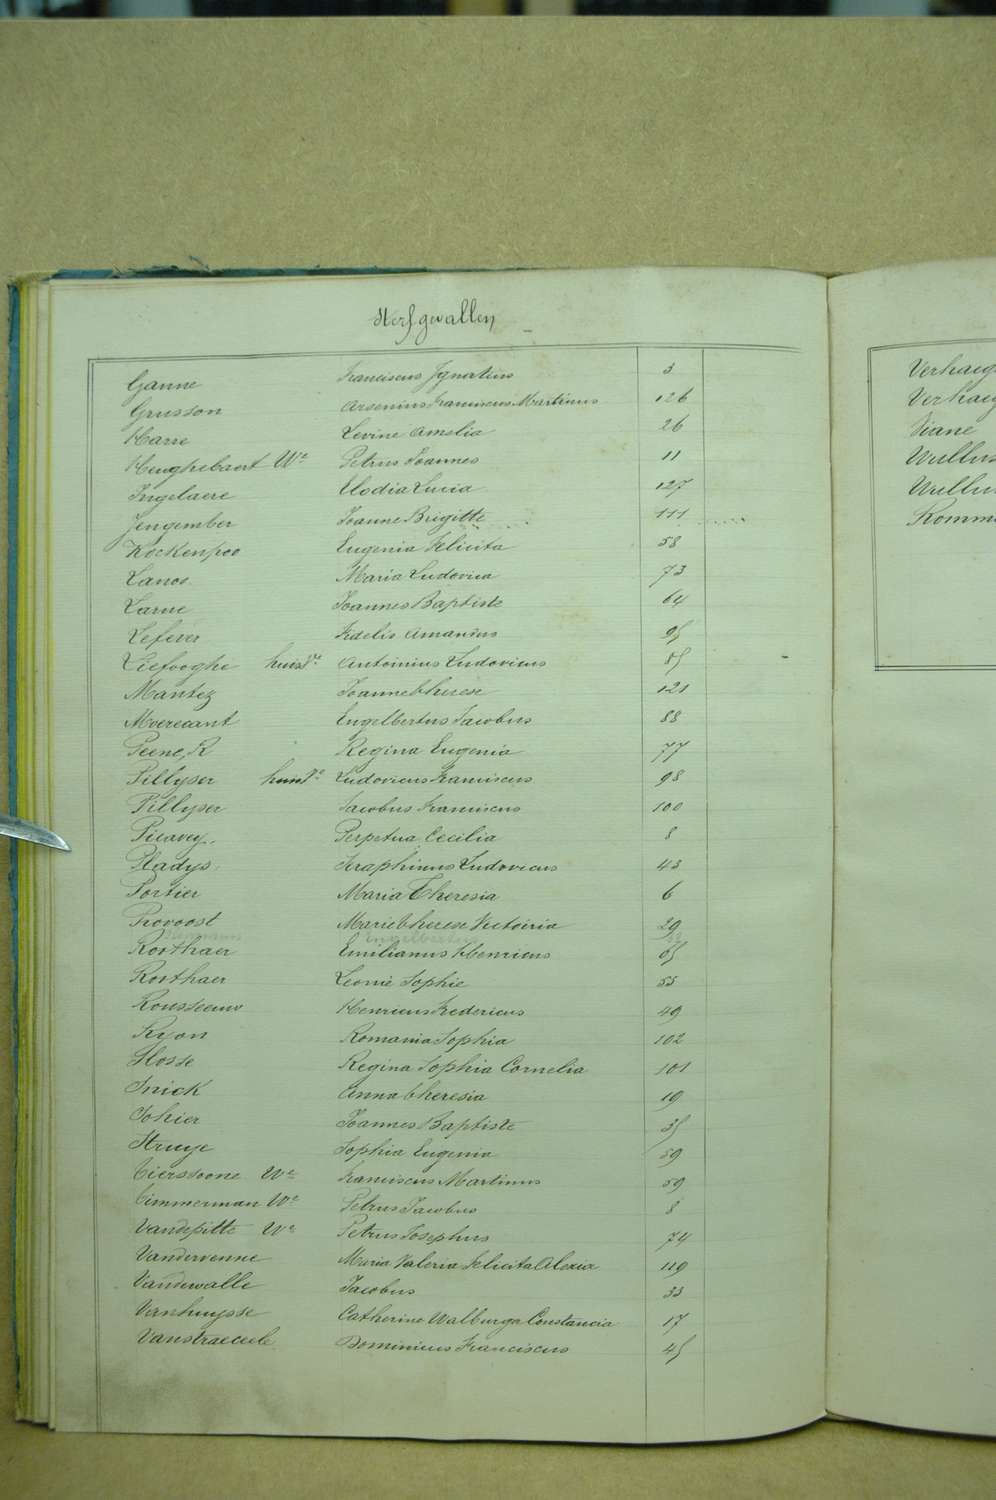 Sterfgevallen
Ganne Franciscus Ignatius 3
Grusson Arsenius Franciscus Martinus 126
Harre Levine Amelia 26
Heughebaert We Petrus Joannes 11
Ingelaere Elodia Lucia 127
Jengember Joanne Brigitte 111
Kockenpoo Eugenia Felicita 58
Lanos Maria Ludovica 73
Larne Joannes Baptiste 64
Lefever Fidelis Amandus 95
Liefooghe huisve Antoinius Ludovicus 85
Mantez Joanne therese 121
Moerecant Engelbertus Jacobus 88
Peene, R Regina Eugenia 77
Pillyser huisve Ludovicus Franciscus 98
Pillyser Jacobus Franciscus 100
Picavey Perpetua Cecilia 8
Pladys Seraphinus Ludovicus 43
Portier Maria Theresia 6
Provoost Marie therese Victoiria 29
Engelbertus
Rosthaer Emilianus Henricus 65
Rosthaer Leonie Sophie 55
Rousseeuw Henricus Fredericus 49
Ryon Romania Sophia 102
Slosse Regina Sophia Cornelia 101
Snick Anna theresia 19
Sohier Joannes Baptiste 35
Struye Sophia Eugenia 59
Tierssoone We Franciscus Martinus 59
Timmerman We Petrus Jacobus 8
Vandepitte We Petrus Josephus 74
Vandervenne Maria Valeria Felicita Alexia 119
Vandewalle Jacobus 33
Vanhuysse Catherine Walburga Constancia 17
Vanstraeceele Dominicus Franciscus 45
Verhaeg
Verhaeg
Viane
Wullus
Wullu
Romm